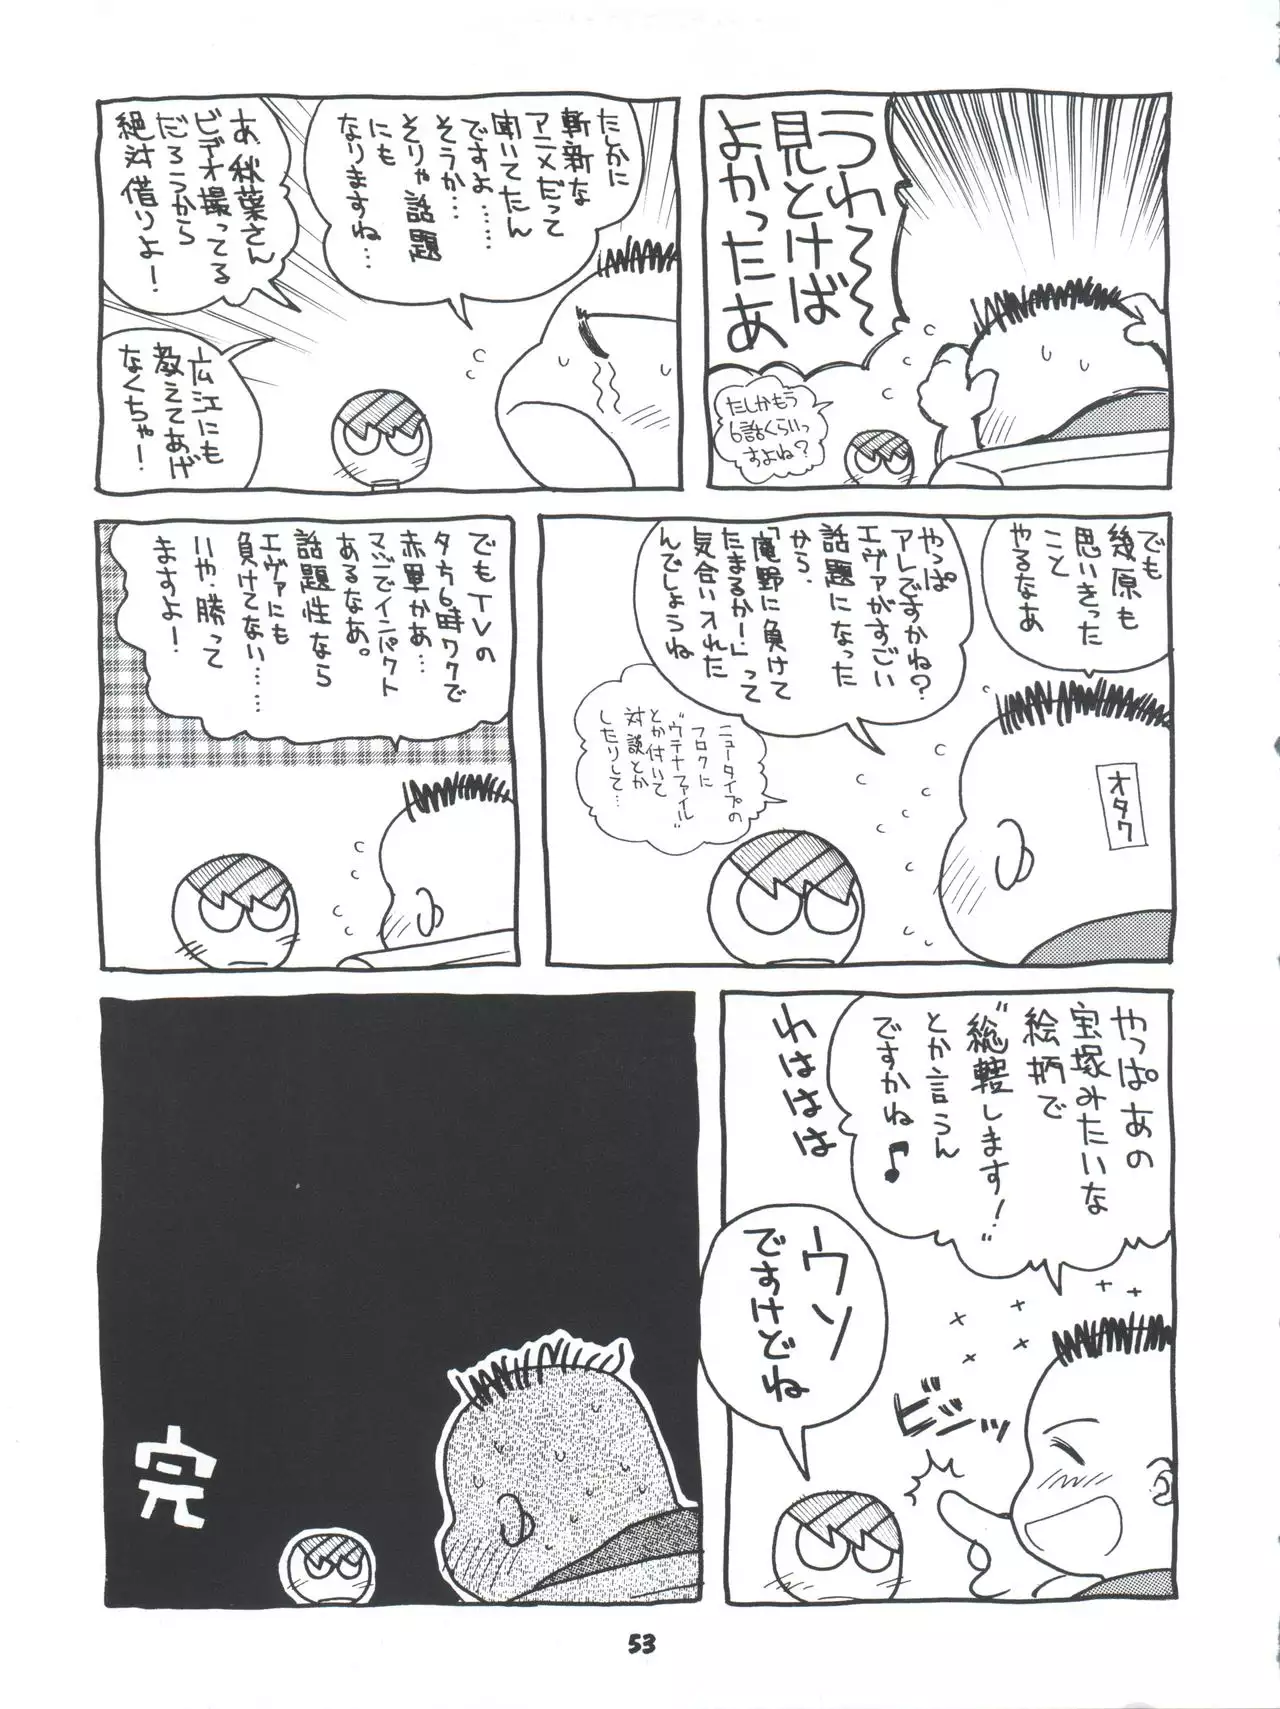 うわ〜〜
見とけば
よかったあ
たしかもう
6話くらいっ
すよね?
たしかに
斬新な
アニメだって
聞いてたん
ですよ……
そうか…
そりゃ話題
にも
なりますね…
あ、秋葉さん
ビデオ撮ってる
だろうから
絶対借りよ!
広江にも
教えてあげ
なくちゃー!
でも
幾原も
思いきった
こと
やるなあ
オタク
やっぱ
アレですかね?
エヴァがすごい
話題になった
から、
「庵野に負けて
たまるかー!」って
気合い入れた
んでしょうね
ニュータイプの
フロクに
"ウテナファイル"
とか付いて
対談とか
したりして…
でもTVの
夕方6時ワクで
赤軍かあ…
マジでインパクト
あるなあ。
話題性なら
エヴァにも
負けてない……
いや、勝って
ますよ!
やっぱあの
宝塚みたいな
絵柄で
"総轄します!"
とか言うん
ですかね♪
わははは
ビシッ
ウソ
ですけどね
完
53